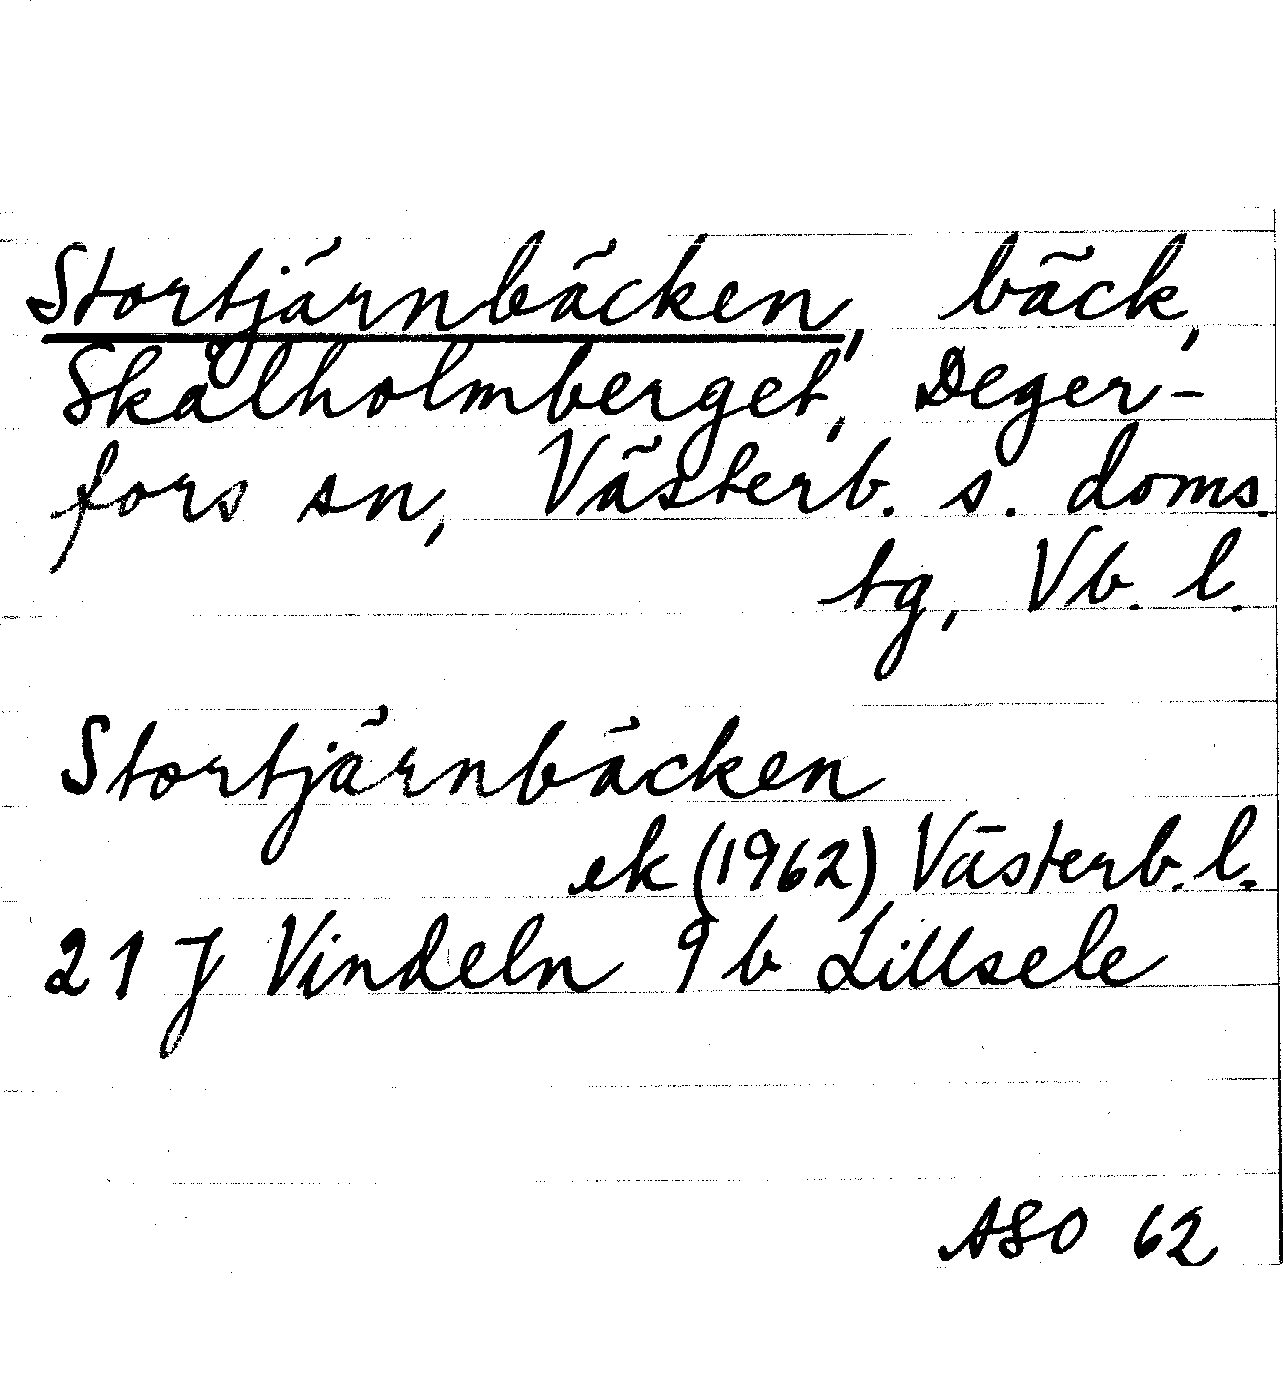 Stortjärnbäcken, bäck,
Skålholmberget, Deger-
fors sn, Västerb. s. doms.
tg, Vb. l.
Stortjärnbäcken
ek (1962) Västerb. l.
21 J Vindeln 9 b Lillsele
ASO 62